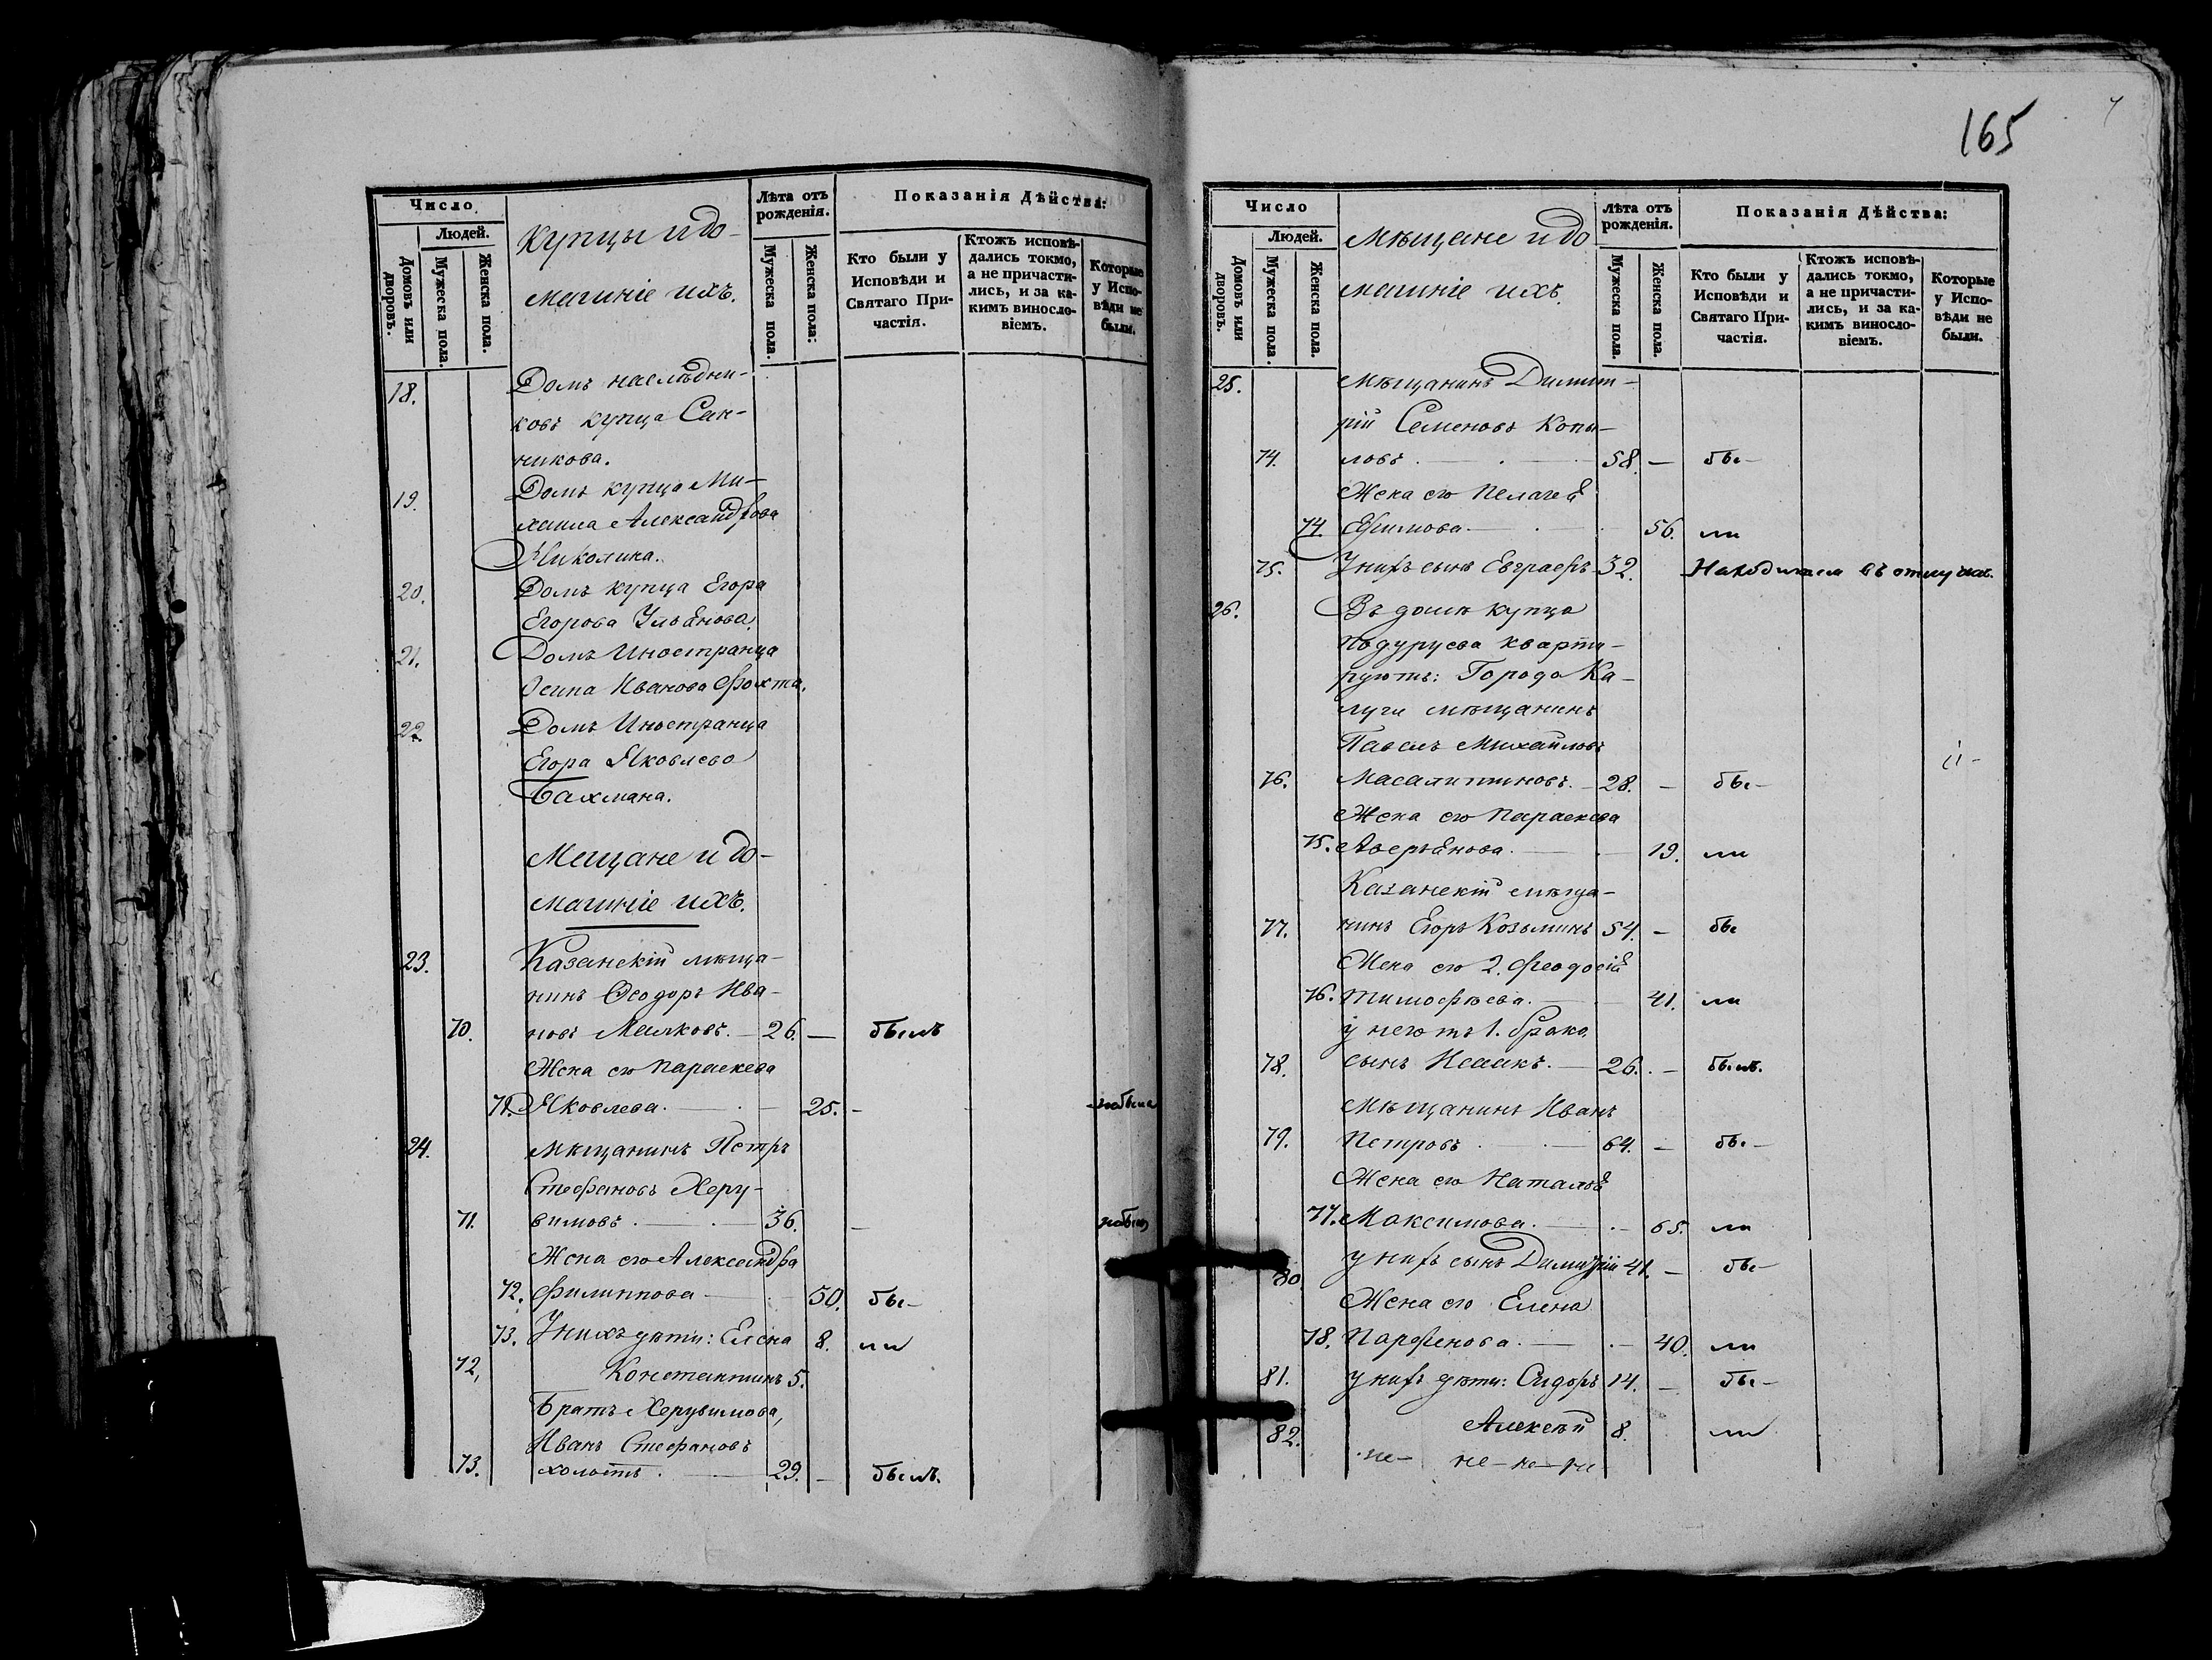 Число
Людей.
Домовъ или дворовъ.
Мужеска пола.
Женска пола.
Купцы и до-
машніе ихъ.
Лѣта отъ рожденія.
Мужеска пола.
Женска пола.
Показанія Дѣйства:
Кто были у Исповѣди и Святаго При-частія.
Ктожъ исповѣ-дались токмо, а не причасти-лись, и за ка-кимъ винносло-віемъ.
Которые у Испо-вѣди не были.
18. Домъ наслѣдни-
ковъ купца Сан-
никова.
19. Домъ купца Ми-
хаила Александрова
Николина.
20. Домъ купца Егора
Егорова Ульянова.
21. Домъ Иностранца
Осипа Иванова Фохта.
22. Домъ Иностранца
Егора Яковлева
Бахмана.
Мещане и до-
машніе ихъ.
23. Казанскій мѣща-
нинъ Ѳеодоръ Ива-
70. новъ Малковъ. — 26. — былъ
Жена его Параскева
71. Яковлева. — 25. - небыла
24. Мѣщанинъ Петръ
Стефановъ Херу-
71. вимовъ. — 36. — небылъ
Жена его Александра
72. Филиппова — 50. бы-
73. У нихъ дѣти: Елена 8. ли
72. Константинъ 5.
Братъ Херувимова,
Иванъ Стефановъ
73. холостъ. — 29. — былъ.
165
Число
Людей.
Домовъ или дворовъ.
Мужеска пола.
Женска пола.
Мѣщане и до
машніе ихъ.
Лѣта отъ рожденія.
Мужеска пола.
Женска пола.
Показанія Дѣйства:
Кто были у Исповѣди и Святаго При-частія.
Ктожъ исповѣ-дались токмо, а не причасти-лись, и за ка-кимъ винносло-віемъ.
Которые у Испо-вѣди не были.
25. Мѣщанинъ Димит-
рій Семеновъ Копы-
74. ловъ. — 58. — бы-
Жена его Пелагея
74. Ефимова — 56. ли
75. У нихъ сынъ Евграфъ 32. Находился въ отлучкѣ.
26. Въ домѣ купца
кварти-
руютъ: Города Ка-
луги мѣщанинъ
Павелъ Михайловъ
76. Масалитиновъ. — 28. — бы-
Жена его Параскева
75. Аверьянова. — 19. ли
Казанскій мѣща-
77. нинъ Егоръ Козьминъ 54. — бы
Жена его 2. Феодосія
76. Тимофѣева. — 41. ли
у него отъ 1. брака
78. сынъ Исаакъ. — 26. — былъ.
Мѣщанинъ Иванъ
79. Петровъ — 64. — бы-
Жена его Наталья
77. Максимова. — 65. ли
80. у нихъ сынъ Димитрій 41. — бы-
Жена его Елена
78. Парфенова. — 40. ли
81. у нихъ дѣти: Сидоръ 14. — бы-
82. Алексѣй 8. ли